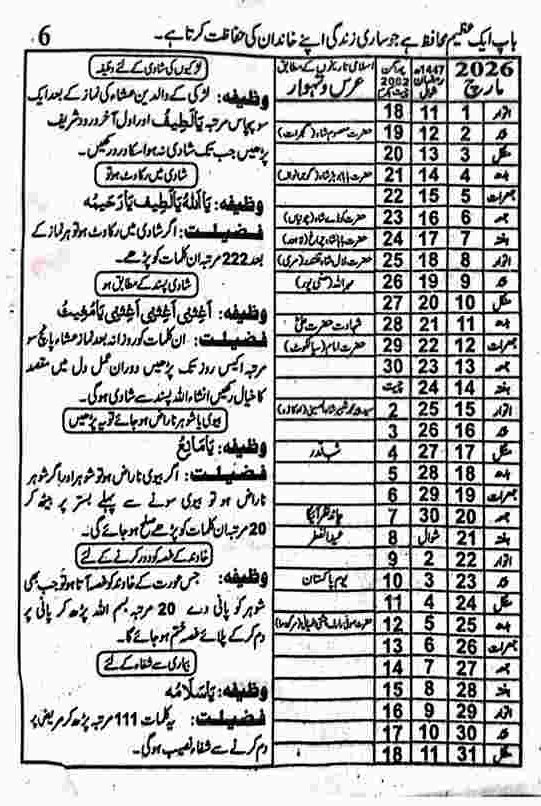 باپ ایک عظیم محافظ ہے جو ساری زندگی اپنے خاندان کی حفاظت کرتا ہے۔ 6
2026 مارچ
1447ھ رمضان شوال
2082
اسلامی تاریخوں کے مطابق
عرس و تہوار
اتوار 1 11 18
2 12 19 حضرت معصوم شاہ (گجرات)
منگل 3 13 20
بدھ 4 14 21
جمعرات 5 15 22
جمعہ 6 16 23
ہفتہ 7 17 24
اتوار 8 18 25
9 19 26
منگل 10 20 27
بدھ 11 21 28 شہادت حضرت علیؓ
جمعرات 12 22 29 حضرت امام (سیالکوٹ)
جمعہ 13 23 30
ہفتہ 14 24 چیت
اتوار 15 25 2
16 26 3
منگل 17 27 4 شب قدر
بدھ 18 28 5
جمعرات 19 29 6
جمعہ 20 30 7 چاند نظر آئیگا
ہفتہ 21 شوال 8 عید الفطر
اتوار 22 2 9
23 3 10 یوم پاکستان
منگل 24 4 11
بدھ 25 5 12
جمعرات 26 6 13
جمعہ 27 7 14
ہفتہ 28 8 15
اتوار 29 9 16
30 10 17
منگل 31 11 18
لڑکیوں کی شادی کے لئے وظیفہ
وظیفہ: لڑکی کے والدین عشاء کی نماز کے بعد ایک
سو پچاس مرتبہ یَالَطِیفُ اور اول آخر درود شریف
پڑھیں جب تک شادی نہ ہو اسکا ورد رکھیں۔
شادی میں رکاوٹ ہو تو
وظیفہ: یَااَللہُ یَالَطِیفُ یَارَحِیمُ
فضیلت: اگر شادی میں رکاوٹ ہو تو ہر نماز کے
بعد 222 مرتبہ ان کلمات کو پڑھے۔
شادی پسند کے مطابق ہو
وظیفہ: اَغِثْنِی اَغِثْنِی اَغِثْنِی یَامُغِیثُ
فضیلت: ان کلمات کو روزانہ بعد نماز عشاء پانچ سو
مرتبہ اکیس روز تک پڑھیں دوران عمل دل میں مقصد
کا خیال رکھیں انشاء اللہ پسند سے شادی ہوگی۔
بیوی یا شوہر ناراض ہو جائے تو یہ پڑھیں
وظیفہ: یَامَانِعُ
فضیلت: اگر بیوی ناراض ہو تو شوہر اور اگر شوہر
ناراض ہو تو بیوی سونے سے پہلے بستر پر بیٹھ کر
20 مرتبہ ان کلمات کو پڑھے صلح ہو جائے گی۔
خاوند کے غصہ کو دور کرنے کے لئے
وظیفہ: جس عورت کے خاوند کو غصہ آتا ہو تو جب بھی
شوہر کو پانی دے 20 مرتبہ بسم اللہ پڑھ کر پانی پر
دم کر کے پلائے غصہ ختم ہو جائے گا۔
بیماری سے شفاء کے لئے
وظیفہ: یَاسَلَامُ
فضیلت: یہ کلمات 111 مرتبہ پڑھ کر مریض پر
دم کرنے سے شفاء نصیب ہوگی۔